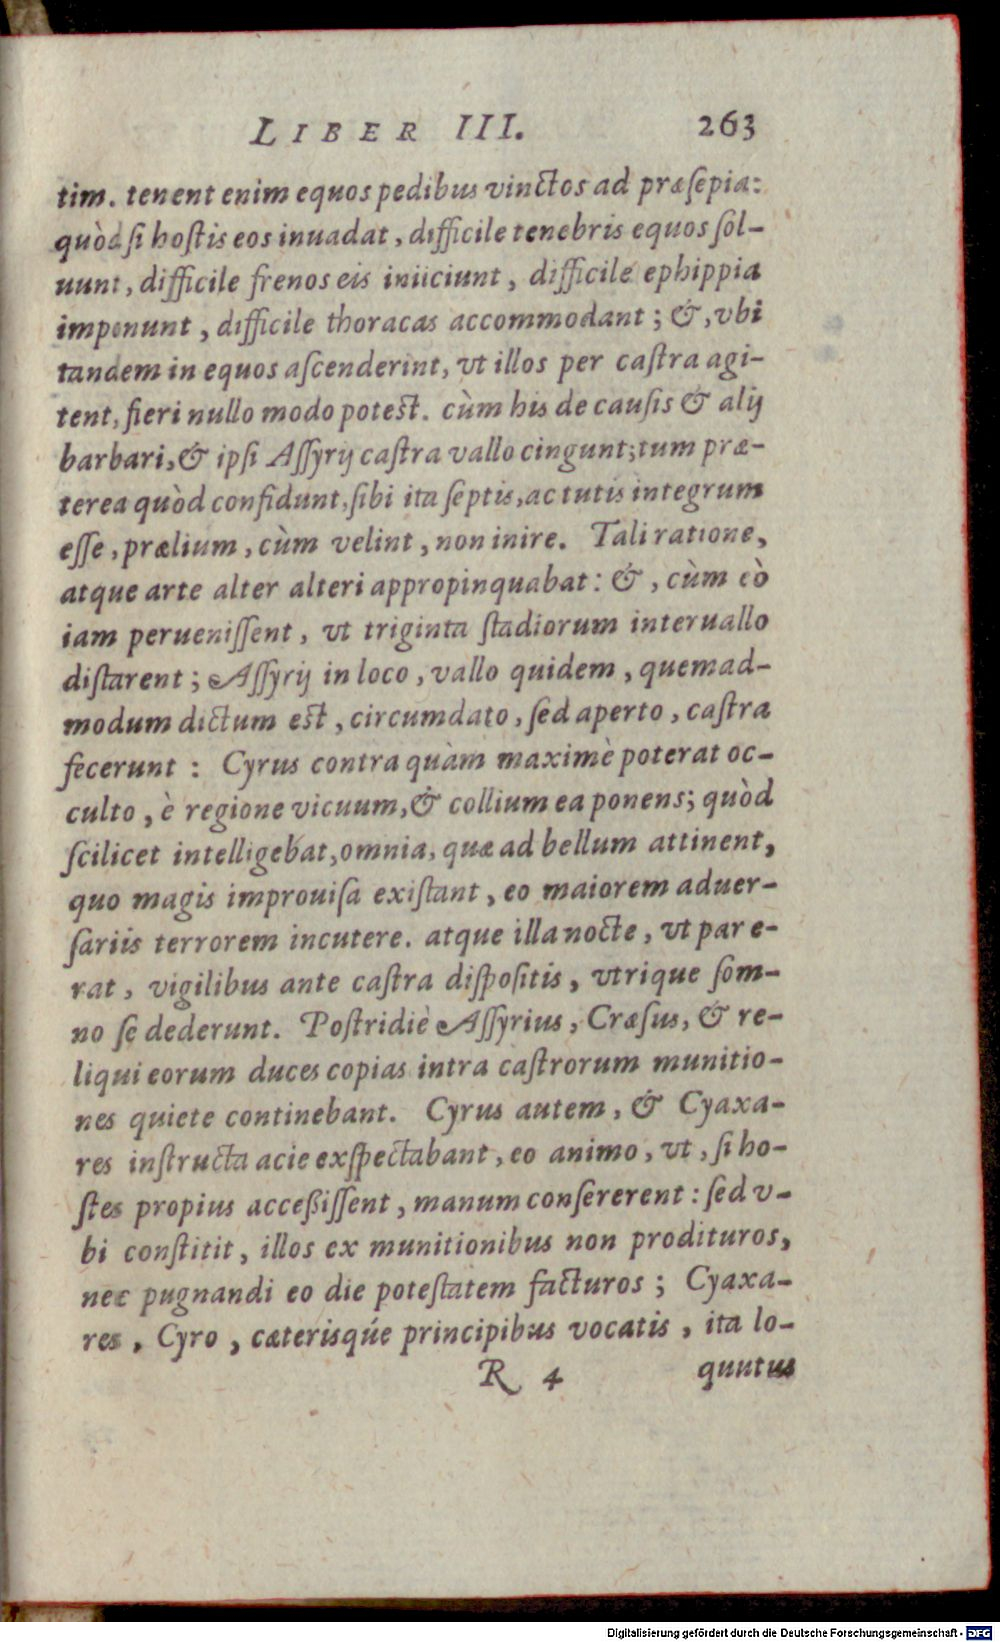 LIBER III. 263
tim. tenent enim equos pedibus vinctos ad præſepia:
quòd ſi hoſtis eos inuadat, difficile tenebris equos ſol-
uunt, difficile frenos eis iniiciunt, difficile ephippia
imponunt, difficile thoracas accommodant; &, vbi
tandem in equos aſcenderint, vt illos per caſtra agi-
tent, fieri nullo modo poteſt. cùm his de cauſis & alij
barbari, & ipſi Aſſyrij caſtra vallo cingunt; tum præ-
terea quòd confidunt, ſibi ita ſeptis, ac tutis integrum
eſſe, prælium, cùm velint, non inire. Tali ratione,
atque arte alter alteri appropinquabat: &, cùm eò
iam perueniſſent, vt triginta ſtadiorum interuallo
diſtarent; Aſſyrij in loco, vallo quidem, quemad-
modum dictum eſt, circumdato, ſed aperto, caſtra
fecerunt: Cyrus contra quàm maximè poterat oc-
culto, è regione vicuum, & collium ea ponens; quòd
ſcilicet intelligebat, omnia, quæ ad bellum attinent,
quo magis improuiſa exiſtant, eo maiorem aduer-
ſariis terrorem incutere. atque illa nocte, vt par e-
rat, vigilibus ante caſtra diſpoſitis, vtrique ſom-
no ſe dederunt. Poſtridiè Aſſyrius, Cræſus, & re-
liqui eorum duces copias intra caſtrorum munitio-
nes quiete continebant. Cyrus autem, & Cyaxa-
res inſtructa acie exſpectabant, eo animo, vt, ſi ho-
ſtes propius acceßiſſent, manum conſererent: ſed v-
bi conſtitit, illos ex munitionibus non prodituros,
nec pugnandi eo die poteſtatem facturos; Cyaxa-
res, Cyro, cæterisqúe principibus vocatis, ita lo-
R 4 quutus
Digitalisierung gefördert durch die Deutsche Forschungsgemeinschaft - DFG